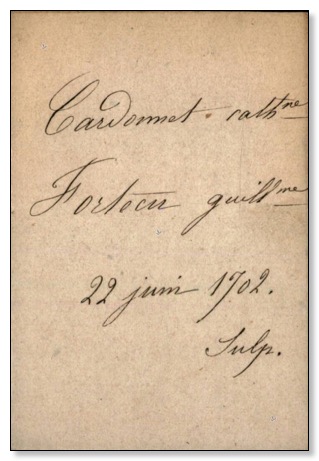 Cardonnet cathne
Forteau guillme
22 juin 1702.
Sulp.